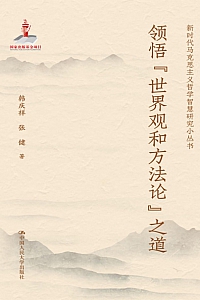 国家出版基金项目
新时代马克思主义哲学智慧研究小丛书
领悟『世界观和方法论』之道
韩庆祥
张健 著
中国人民大学出版社